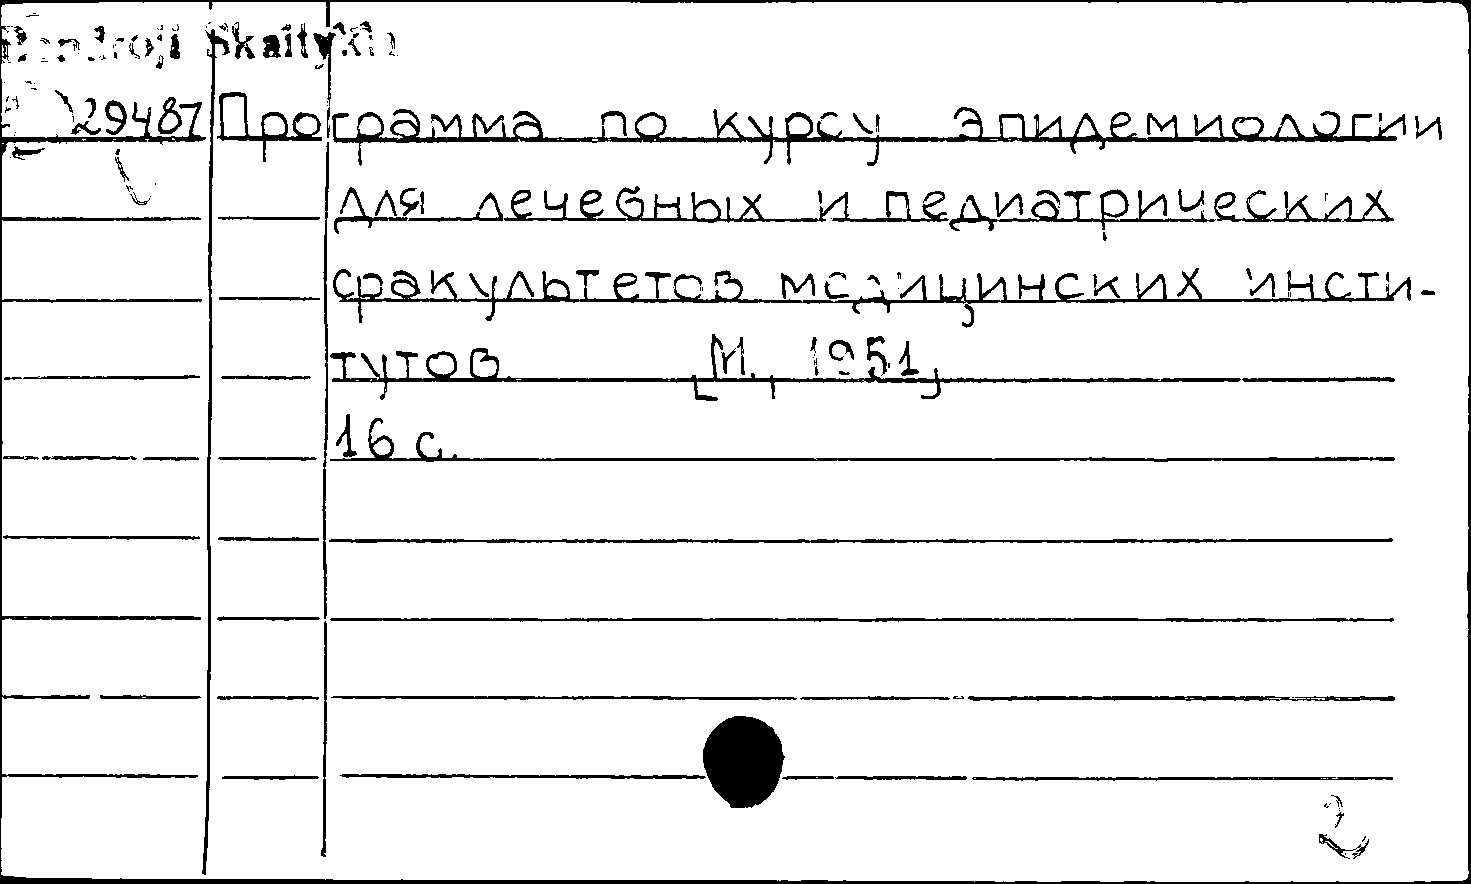 Bendroji Skaitykla
29487 Программа по курсу эпидемиологии
для лечебных и педиатрических
факультетов медицинских инсти-
тутов [М., 1951]
16 с.
2